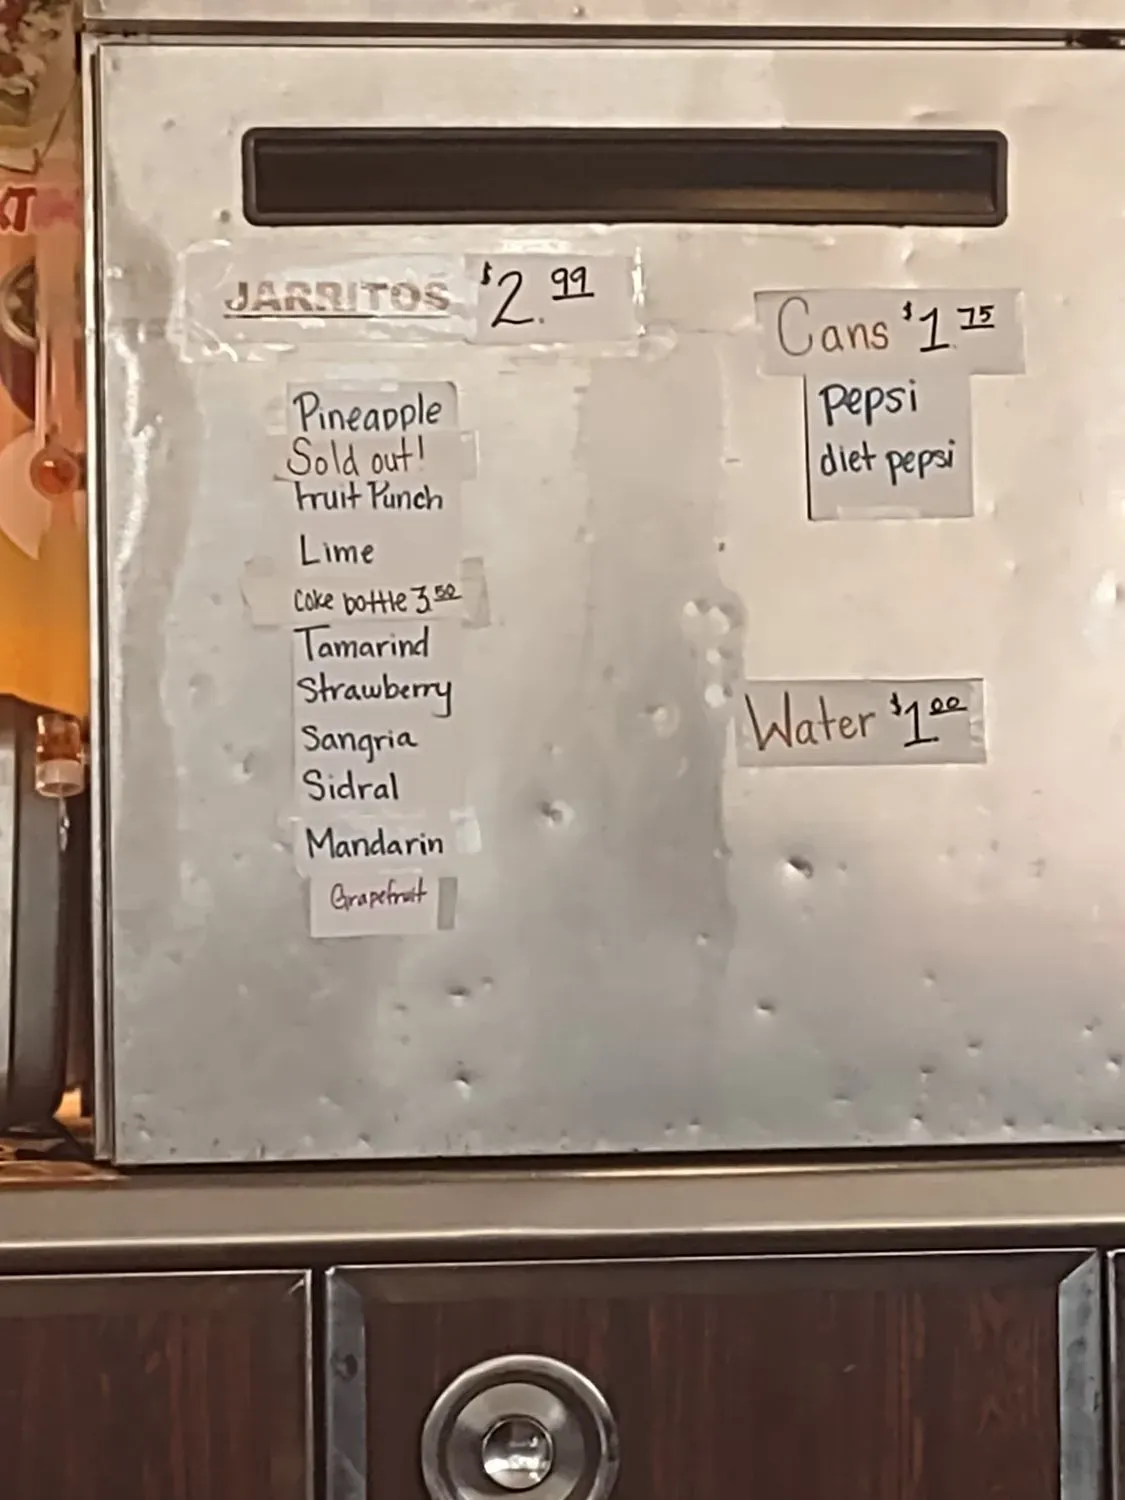 JARRITOS $2.99
Pineapple
Sold out!
Fruit Punch
Lime
Coke bottle 3.50
Tamarind
Strawberry
Sangria
Sidral
Mandarin
Grapefruit
Cans $1.75
Pepsi
diet pepsi
Water $1.00